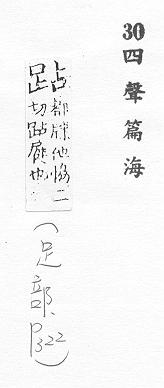 30 四聲篇海
跕 都牒他恊二
切跕屣也
(足部、P322)